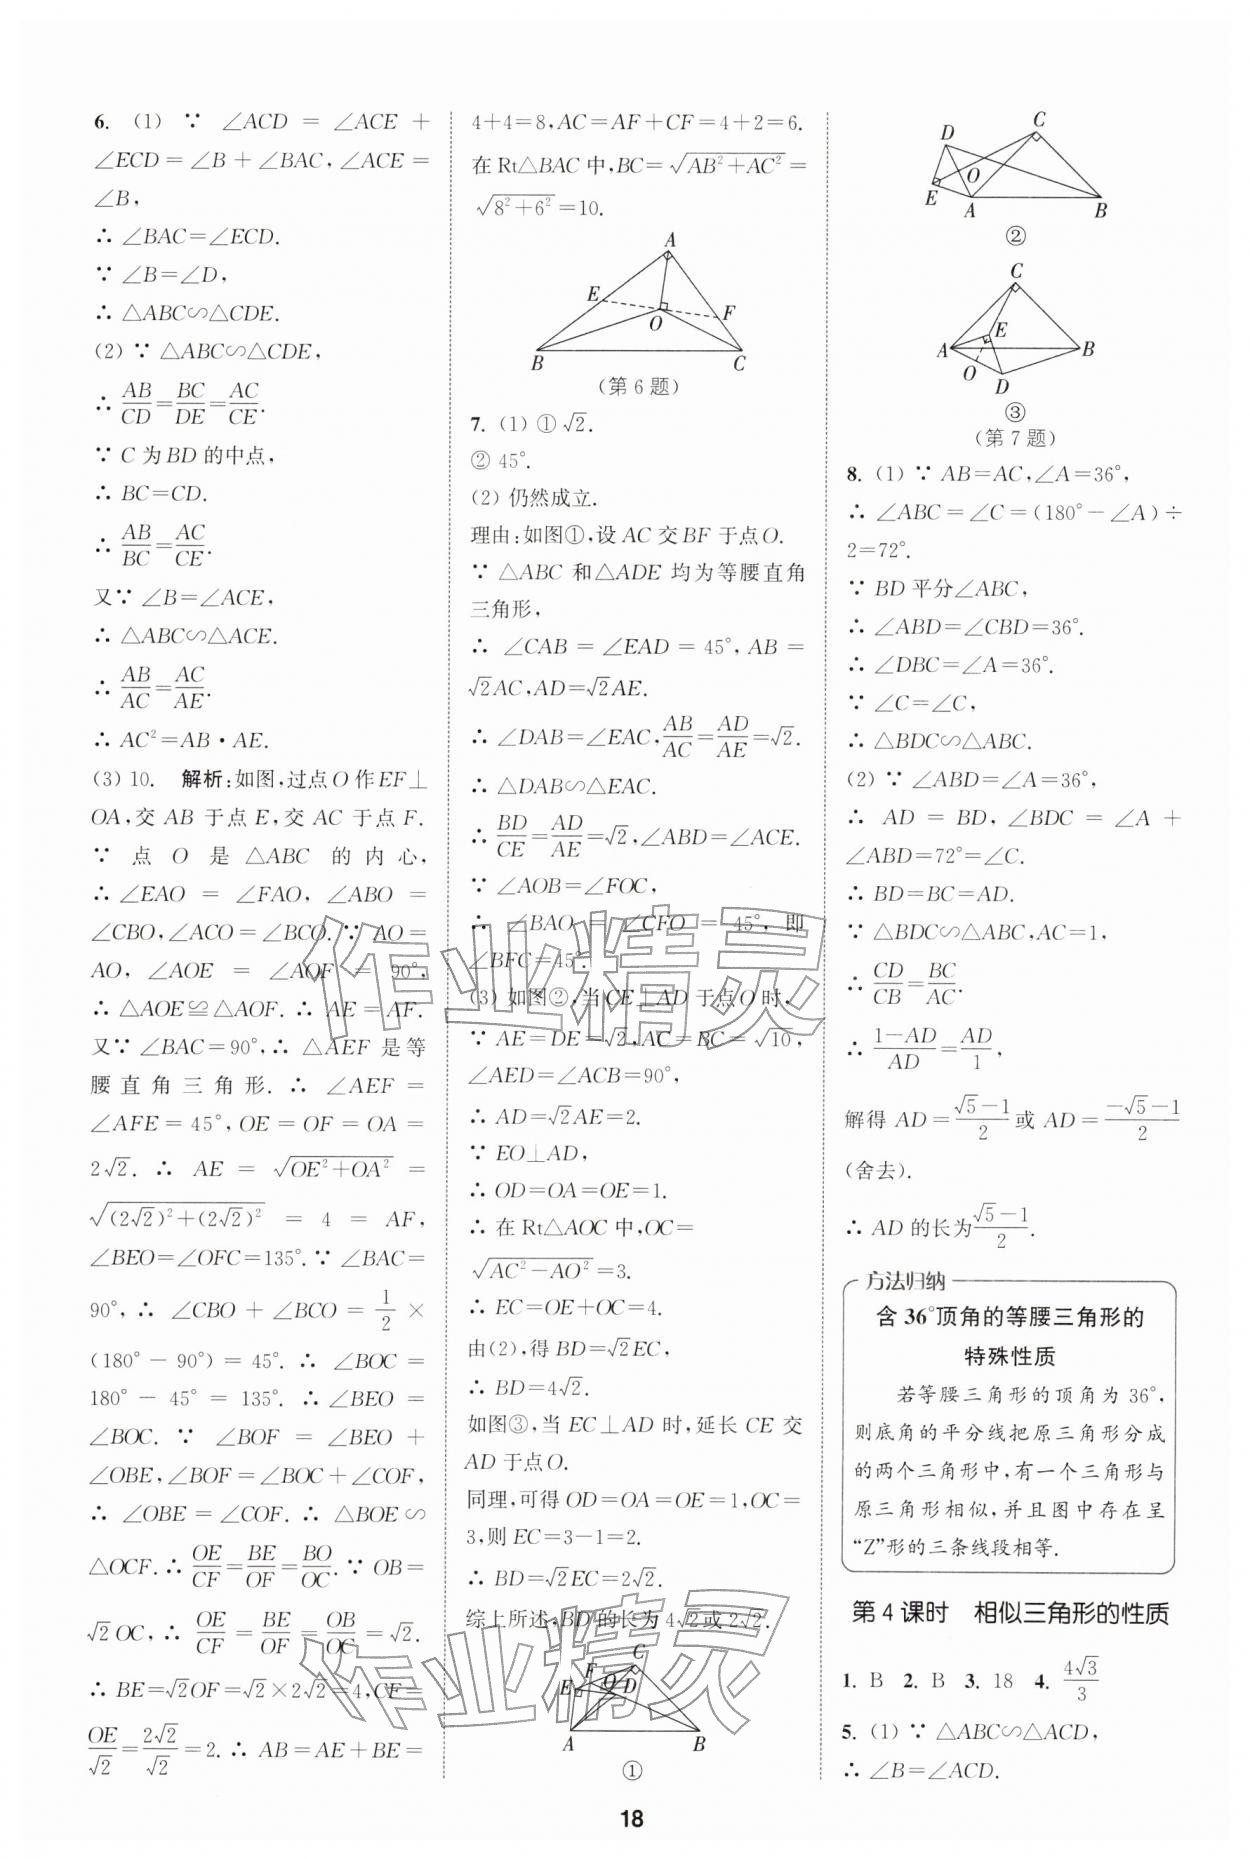 6. (1) ∵ ∠ACD = ∠ACE +
∠ECD = ∠B + ∠BAC, ∠ACE =
∠B,
∴ ∠BAC=∠ECD.
∵ ∠B=∠D,
∴ △ABC∽△CDE.
(2) ∵ △ABC∽△CDE,
∴ AB/CD=BC/DE=AC/CE.
∵ C 为 BD 的中点,
∴ BC=CD.
∴ AB/BC=AC/CE.
又∵ ∠B=∠ACE,
∴ △ABC∽△ACE.
∴ AB/AC=AC/AE.
∴ AC²=AB·AE.
(3) 10. 解析:如图,过点 O 作 EF⊥
OA,交 AB 于点 E,交 AC 于点 F.
∵ 点 O 是 △ABC 的内心,
∴ ∠EAO = ∠FAO, ∠ABO =
∠CBO,∠ACO=∠BCO.∵ AO=
AO, ∠AOE = ∠AOF = 90°,
∴ △AOE≌△AOF. ∴ AE=AF.
又∵ ∠BAC=90°,∴ △AEF 是等
腰直角三角形. ∴ ∠AEF =
∠AFE=45°,OE=OF=OA=
2√2. ∴ AE = √(OE²+OA²) =
√((2√2)²+(2√2)²) = 4 = AF,
∠BEO=∠OFC=135°.∵ ∠BAC=
90°,∴ ∠CBO+∠BCO=1/2×
(180°-90°)=45°.∴ ∠BOC=
180°-45°=135°.∴ ∠BEO=
∠BOC. ∵ ∠BOF = ∠BEO +
∠OBE,∠BOF=∠BOC+∠COF,
∴ ∠OBE=∠COF.∴ △BOE∽
△OCF.∴ OE/CF=BE/OF=BO/OC.∵ OB=
√2OC,∴ OE/CF=BE/OF=OB/OC=√2.
∴ BE=√2OF=√2×2√2=4,CF=
OE/√2=2√2/√2=2.∴ AB=AE+BE=
4+4=8,AC=AF+CF=4+2=6.
在 Rt△BAC 中,BC=√(AB²+AC²)=
√(8²+6²)=10.
A
E
F
O
B
C
(第 6 题)
7. (1) ① √2.
② 45°.
(2) 仍然成立.
理由:如图①,设 AC 交 BF 于点 O.
∵ △ABC 和△ADE 均为等腰直角
三角形,
∴ ∠CAB=∠EAD=45°,AB=
√2AC,AD=√2AE.
∴ ∠DAB=∠EAC,AB/AC=AD/AE=√2.
∴ △DAB∽△EAC.
∴ BD/CE=AD/AE=√2,∠ABD=∠ACE.
∵ ∠AOB=∠FOC,
∴ ∠BAO = ∠CFO = 45°, 即
∠BFC=45°.
(3) 如图②,当 CE⊥AD 于点 O 时,
∵ AE=DE=√2,AC=BC=√10,
∠AED=∠ACB=90°,
∴ AD=√2AE=2.
∵ EO⊥AD,
∴ OD=OA=OE=1.
∴ 在 Rt△AOC 中,OC=
√(AC²-AO²)=3.
∴ EC=OE+OC=4.
由(2),得 BD=√2EC,
∴ BD=4√2.
如图③,当 EC⊥AD 时,延长 CE 交
AD 于点 O.
同理,可得 OD=OA=OE=1,OC=
3,则 EC=3-1=2.
∴ BD=√2EC=2√2.
综上所述,BD 的长为 4√2或 2√2.
F
C
E
O
D
A
B
①
D
C
O
E
A
B
②
C
E
A
B
O
D
③
(第 7 题)
8. (1) ∵ AB=AC,∠A=36°,
∴ ∠ABC=∠C=(180°-∠A)÷
2=72°.
∵ BD 平分∠ABC,
∴ ∠ABD=∠CBD=36°.
∴ ∠DBC=∠A=36°.
∵ ∠C=∠C,
∴ △BDC∽△ABC.
(2) ∵ ∠ABD=∠A=36°,
∴ AD = BD, ∠BDC = ∠A +
∠ABD=72°=∠C.
∴ BD=BC=AD.
∵ △BDC∽△ABC,AC=1,
∴ CD/CB=BC/AC.
∴ (1-AD)/AD=AD/1,
解得 AD=(√5-1)/2 或 AD=(-√5-1)/2
(舍去).
∴ AD 的长为(√5-1)/2.
方法归纳
含 36°顶角的等腰三角形的
特殊性质
若等腰三角形的顶角为 36°,
则底角的平分线把原三角形分成
的两个三角形中,有一个三角形与
原三角形相似,并且图中存在呈
“Z”形的三条线段相等.
第 4 课时 相似三角形的性质
1. B 2. B 3. 18 4. 4√3/3
5. (1) ∵ △ABC∽△ACD,
∴ ∠B=∠ACD.
18
作业精灵
作业精灵